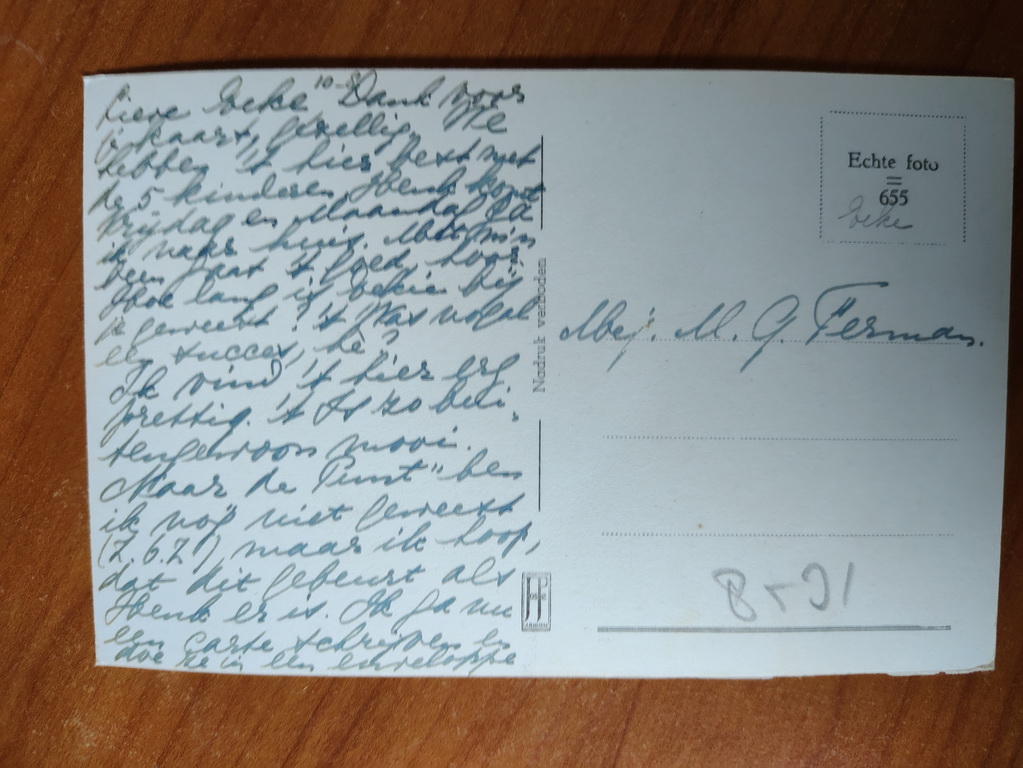 Lieve Eeke 10-8 Dank voor
je kaart, gezellig. We
hebben 't hier best met
de 5 kinderen. Henk komt
Vrijdag en Maandag ga
ik naar huis. Met mijn
been gaat 't goed, hoor.
Hoe lang is bij
je geweest? 't Was nogal
een succes, hè?
Ik vind 't hier erg
prettig. 't Is zo bui-
tengewoon mooi.
Maar de Punt" ben
ik nog niet geweest
(Z.6.Z), maar ik hoop,
dat dit gebeurt als
Henk er is. Ik ga nu
een carte schrijven en
doe ze in een enveloppe
Nadruk verboden
JosPé
ARNHEM
Echte foto
=
655
Eeke
Mej. M. G. Ferman.
8-91